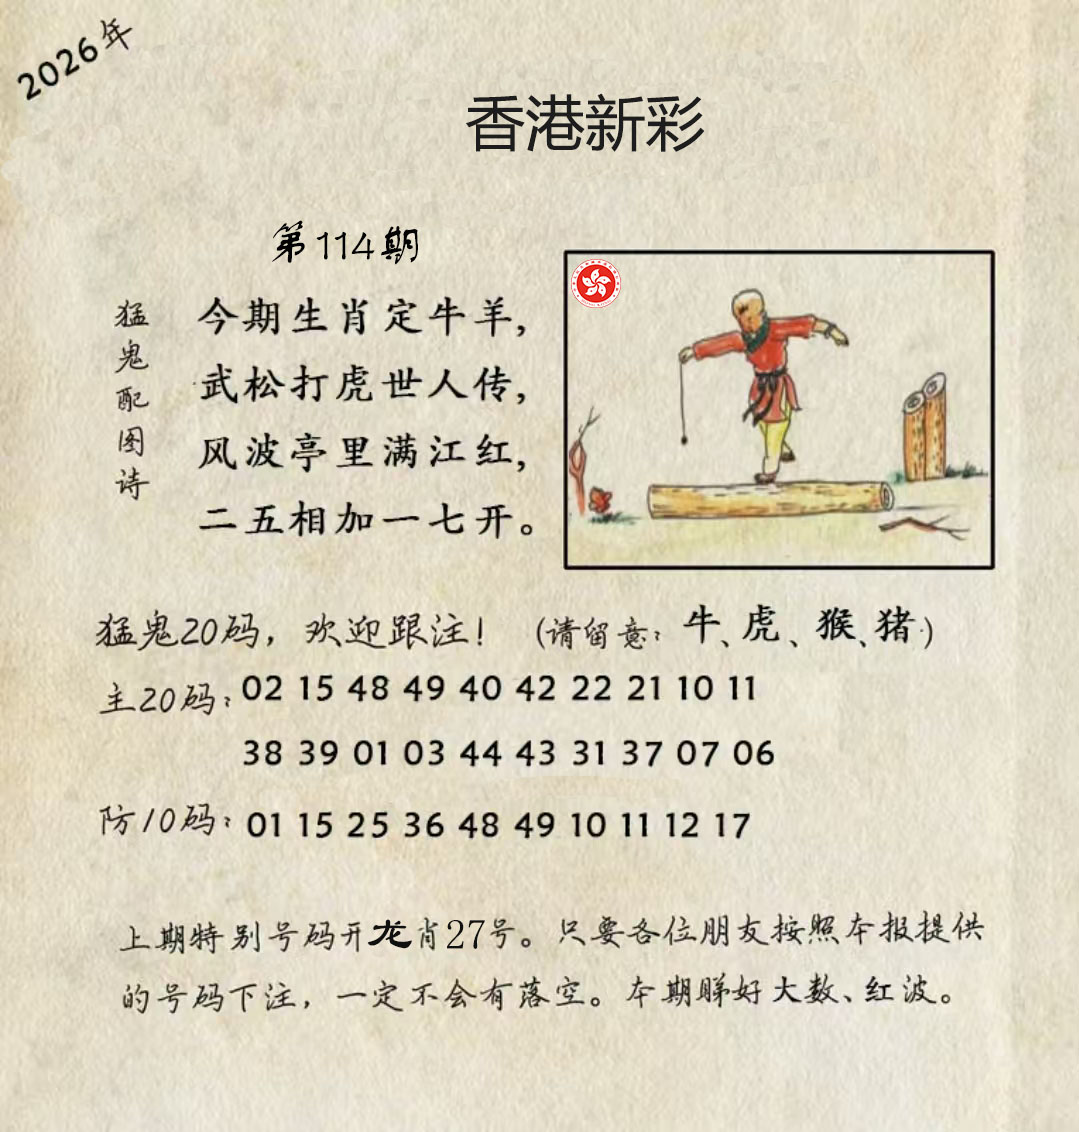 2026年
香港新彩
第114期
猛鬼配图诗
今期生肖定牛羊，
武松打虎世人传，
风波亭里满江红，
二五相加一七开。
猛鬼20码，欢迎跟注！（请留意：牛、虎、猴、猪）
主20码：02 15 48 49 40 42 22 21 10 11
38 39 01 03 44 43 31 37 07 06
防10码：01 15 25 36 48 49 10 11 12 17
上期特别号码开龙肖27号。只要各位朋友按照本报提供
的号码下注，一定不会有落空。本期睇好大数、红波。